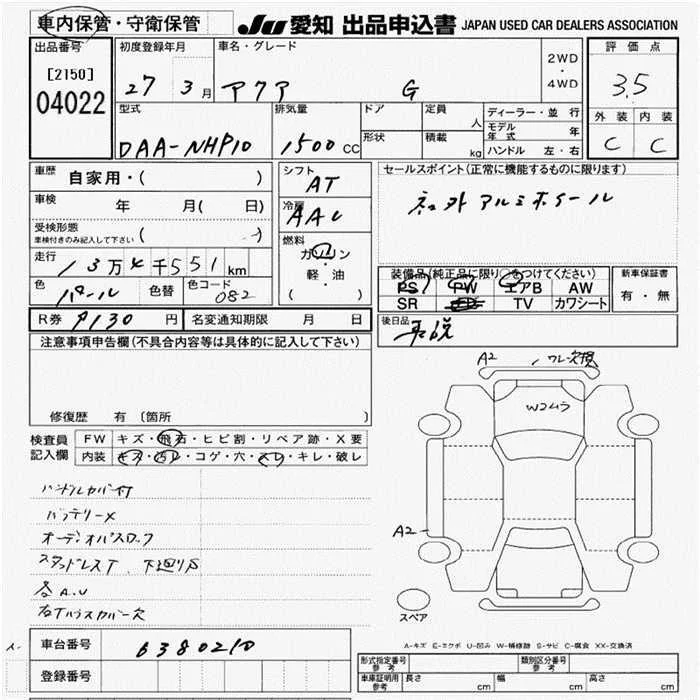 車内保管・守衛保管 JU 愛知 出品申込書 JAPAN USED CAR DEALERS ASSOCIATION
出品番号 初度登録年月 車名・グレード 2WD・4WD 評価点
[2150] 27 3月 アクア G 3.5
04022
型式 排気量 ドア 定員 人 ディーラー・並行 外装 内装
モデル年式 年
DAA-NHP10 1500 CC 形状 積載 kg ハンドル 左・右 C C
車歴 自家用・( ) シフト AT セールスポイント(正常に機能するものに限ります)
車検 年 月( 日) 冷房 AAC 社外アルミホイール
受検形態
車検付きのみ記入して下さい ( ) 燃料 ガソリン
走行 13万4千551km 軽・油 装備品(純正品に限り○をつけてください) 新車保証書
( ) PS PW エアB AW 有・無
色 パール 色替 色コード 082 SR TV カワシート
R券 円 名変通知期限 月 日 後日品
注意事項申告欄(不具合内容等は具体的に記入して下さい)
A2 ワレ交換
W2ムラ
修復歴 有 〔箇所 〕
検査員記入欄 FW キズ・飛石・ヒビ割・リペア跡・X要
内装 キズ・汚レ・コゲ・穴・スレ・キレ・破レ
ハンドルカバー付
バッテリー×
オーディオパスロック A2
スタッドレスT 下廻りS
各A.U
右ドルプスカバー欠
スペア
A-キズ E-エクボ U-凹み W-補修跡 S-サビ C-腐食 XX-交換済
車台番号 6380210
型式指定番号 参考 類別区分番号 参考
登録番号 車庫証明用 参考 長さ cm 幅 cm 高さ cm